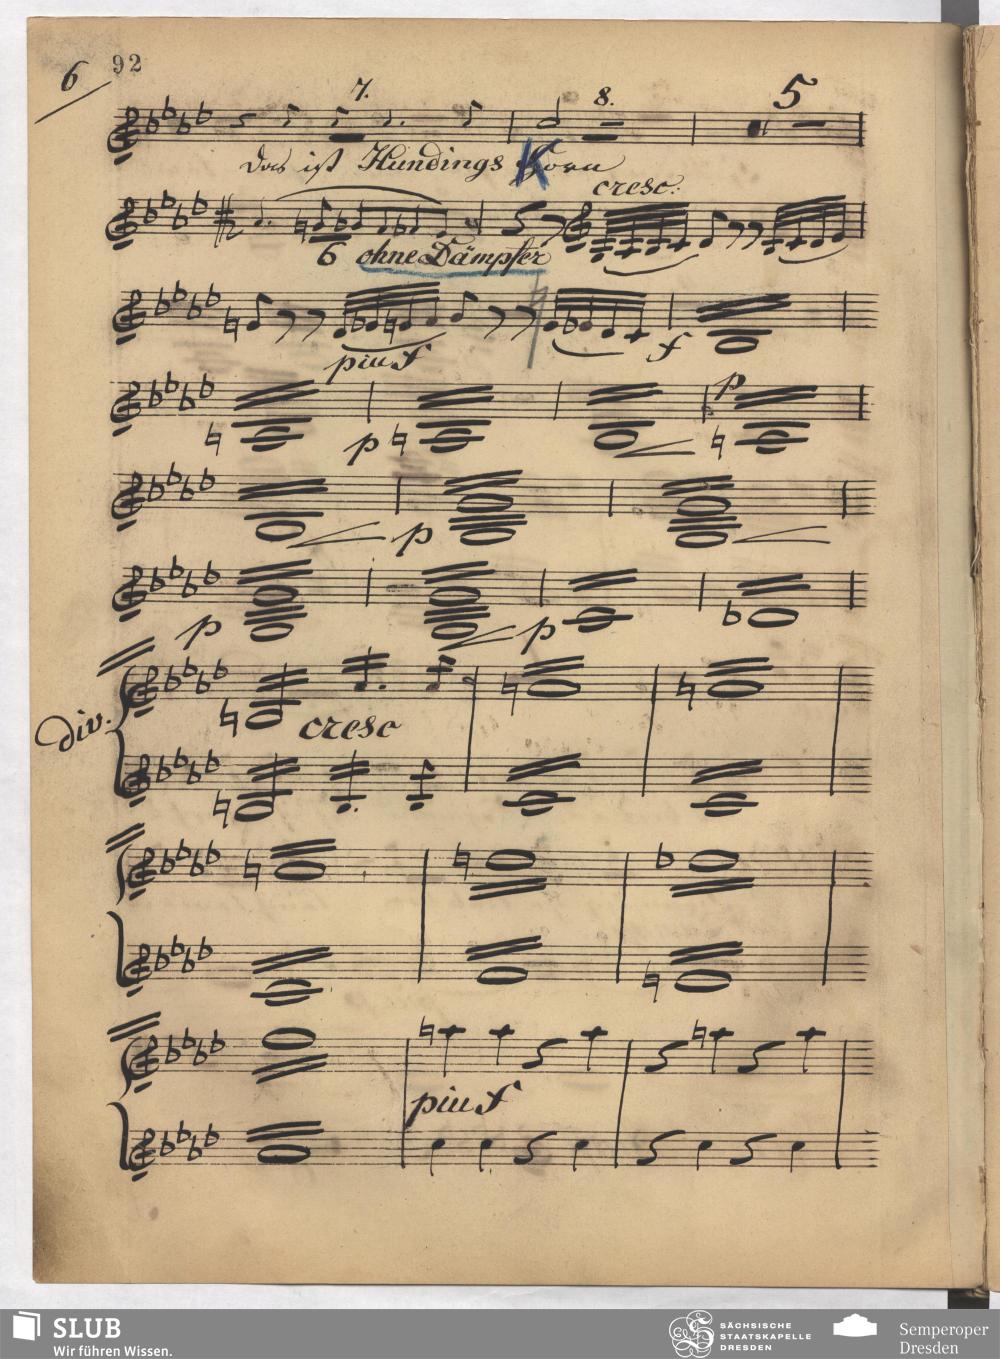 6 92
7. 8. 5
Das ist Hundings Horn
K
cresc.
6 ohne Dämpfer
piu f f
p p
p
p p
div. cresc
piu f
SLUB
Wir führen Wissen.
SÄCHSISCHE
STAATSKAPELLE
DRESDEN
Semperoper
Dresden